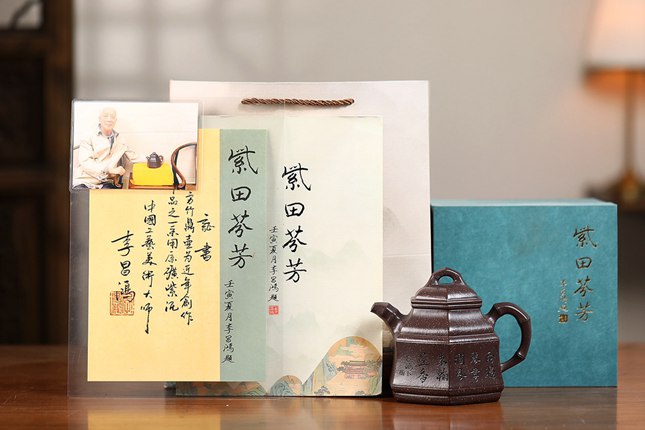 证書
方竹鼎壶为近年創作
品之一采用原礦紫泥
中國工艺美术大师
李昌鴻
紫田芬芳
壬寅夏月李昌鴻題
紫田芬芳
壬寅夏月李昌鴻題
紫田芬芳